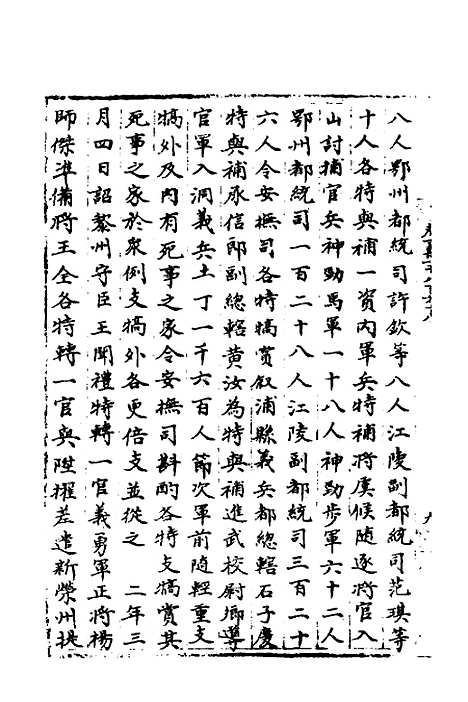 八人鄂州都統司許欽等八人江陵副都統司范琪等
十人各特與補一資內軍兵特補將虞候隨逐將官入
山討捕官兵神勁馬軍一十八人神勁步軍六十二人
鄂州都統司一百二十八人江陵副都統司三百二十
六人令安撫司各特犒賞叙浦縣義兵都總轄石子慶
特與補承信郎副總轄黃汝為特與補進武校尉鄉導
官軍入洞義兵土丁一千六百人節次軍前隨軽重支
犒外及內有死事之家令安撫司斟酌各特支犒賞其
死事之家於衆例支犒外各更倍支並從之　二年三
月四日詔黎州守臣王聞禮特轉一官義勇軍正將楊
師傑準備將王全各特轉一官與陞擢差遣新榮州扙